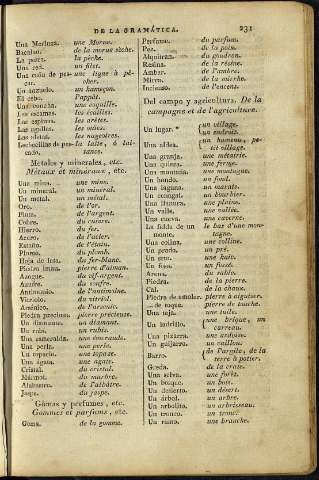 DE LA GRAMÁTICA. 231
Una Merluza. une Morue.
Bacalao. de la morue sèche.
La pesca. la pêche.
Una red. un filet.
Una caña de pescar. une ligne à pêcher.
Un anzuelo. un hameçon.
El cebo. l'appât.
Una concha. une coquille.
Las escamas. les écailles.
Las espinas. les arêtes.
Las agallas. les ouïes.
Las aletas. les nageoires.
Metales y minerales, etc.
Métaux et minéraux, etc.
Una mina. une mine.
Un mineral. un minéral.
Un metal. un métal.
Oro. de l'or.
Plata. de l'argent.
Cobre. du cuivre.
Hierro. du fer.
Acero. de l'acier.
Estaño. de l'étain.
Plomo. du plomb.
Hoja de lata. du fer-blanc.
Piedra iman. pierre d'aiman.
Azogue. du vif-argent.
Azufre. du soufre.
Antimonio. de l'antimoine.
Vitriolo. du vitriol.
Arsénico. de l'arsenic.
Piedra preciosa. pierre precieuse.
Un diamante. un diamant.
Un rubí. un rubis.
Una esmeralda. une émeraude.
Una perla. une perle.
Un topacio. une topaze.
Una ágata. une agate.
Cristal. du cristal.
Mármol. du marbre.
Alabastro. de l'albâtre.
Jaspe. du jaspe.
Gomas y perfumes, etc.
Gommes et parfums, etc.
Goma. de la gomme.
Perfume. du parfum.
Pez. de la poix.
Alquitran. du goudron.
Resina. de la résine.
Ambar. de l'ambre.
Mirra. de la mirrhe.
Incienso. de l'encens.
Del campo y agricultura. De la
campagne et de l'agriculture.
Un lugar. un village.
un endroit.
Una aldea. un hameau, petit village.
Una granja. une métairie.
Una quinta. une ferme.
Una montaña. une montagne.
Un hondo. un fond.
Una laguna. un marais.
Una llanura. une plaine.
Un valle. une vallée.
Una cueva. une caverne.
La falda de un monte. le bas d'une montagne.
Una colina. une colline.
Un prado. un pré.
Un seto. une haie.
Un foso. un fossé.
Arena. du sable.
Piedra. de la pierre.
Cal. de la chaux.
Piedra de amolar. pierre à aiguiser.
de toque. pierre de touche.
Una teja. une tuile.
Un ladrillo. une brique, un carreau.
Una pizarra. une ardoise.
Un guijarro. un caillou.
Barro. de l'argile, de la terre à potier.
Greda. de la craie.
Una selva. une forêt.
Un bosque. un bois.
Un desierto. un désert.
Un árbol. un arbre.
Un arbolito. un arbrisseau.
Un tronco. un tronc.
Un ramo. une branche.